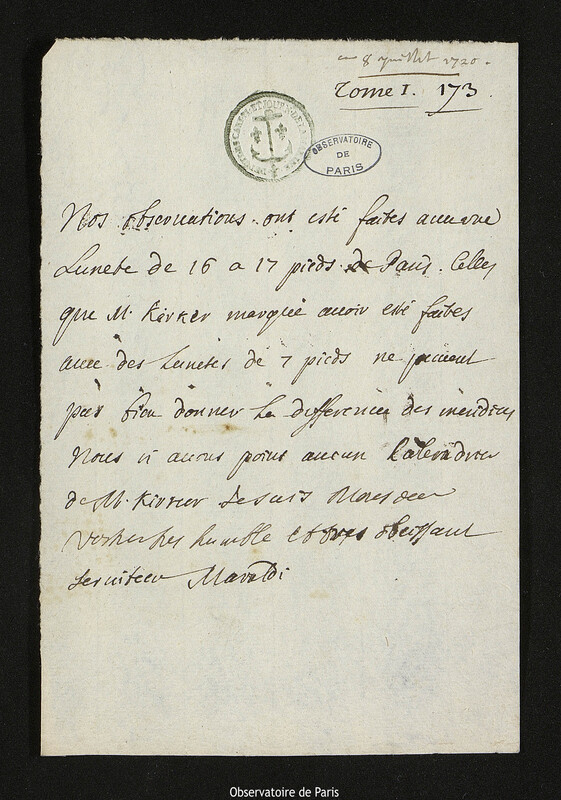 8 Juillet 1720.
Tome I. 173
OBSERVATOIRE
DE
PARIS
Nos observations ont esté faites avec une
Lunete de 16 a 17 pieds de Paris. Celles
que M. Kirker marque avoir esté faites
avec des Lunetes de 7 pieds ne peuvent
pas bien donner la difference des meridiens
Nous n avons point aucun Kalendrier
de M. Kirker Je suis Monsieur
Vostre tres humble et tres obeissant
serviteur Maraldi
Observatoire de Paris